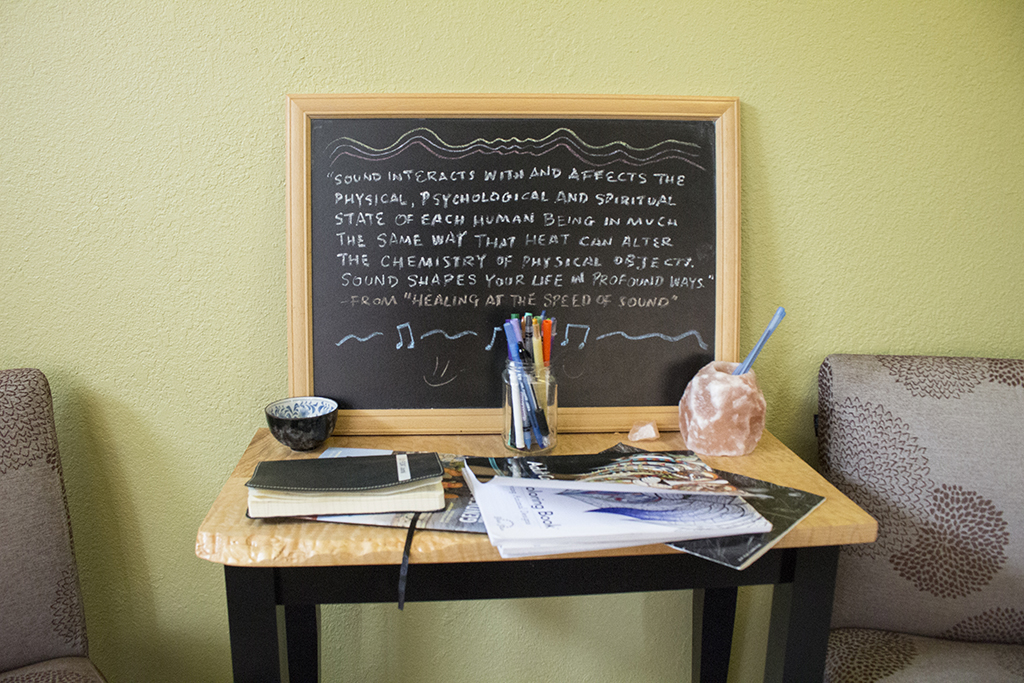 "SOUND INTERACTS WITH AND AFFECTS THE
PHYSICAL, PSYCHOLOGICAL AND SPIRITUAL
STATE OF EACH HUMAN BEING IN MUCH
THE SAME WAY THAT HEAT CAN ALTER
THE CHEMISTRY OF PHYSICAL OBJECTS.
SOUND SHAPES YOUR LIFE IN PROFOUND WAYS."
-FROM "HEALING AT THE SPEED OF SOUND"
oloring Book